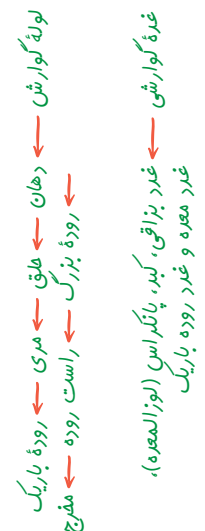 لولهٔ گوارش ← دهان ← حلق ← مری ← رودهٔ باریک
← رودهٔ بزرگ ← راست روده ← مخرج
غدهٔ گوارشی ← غدد بزاقی، کبد، پانکراس (لوزالمعده)،
غدد معده و غدد روده باریک